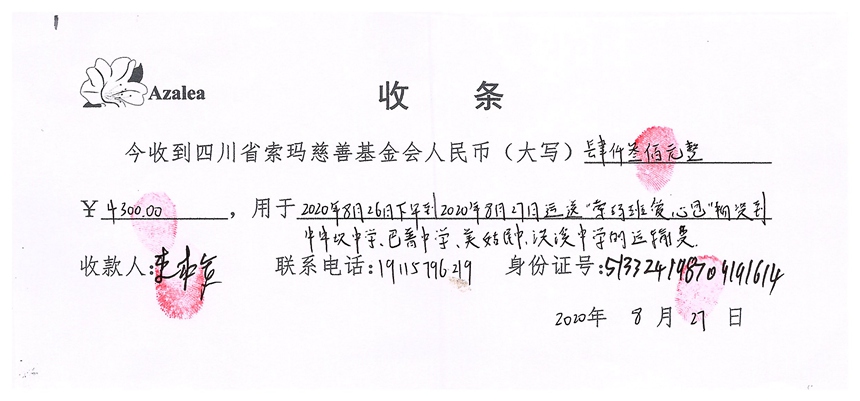 Azalea
收 条
今收到四川省索玛慈善基金会人民币（大写）肆仟叁佰元整
￥4300.00，用于2020年8月26日下午到2020年8月27日运送“索玛班爱心包”物资到
牛牛坝中学、巴普中学、美姑民中、洪溪中学的运输费.
收款人: 联系电话:19115796219 身份证号:513324198709191614
2020年 8 月 27 日